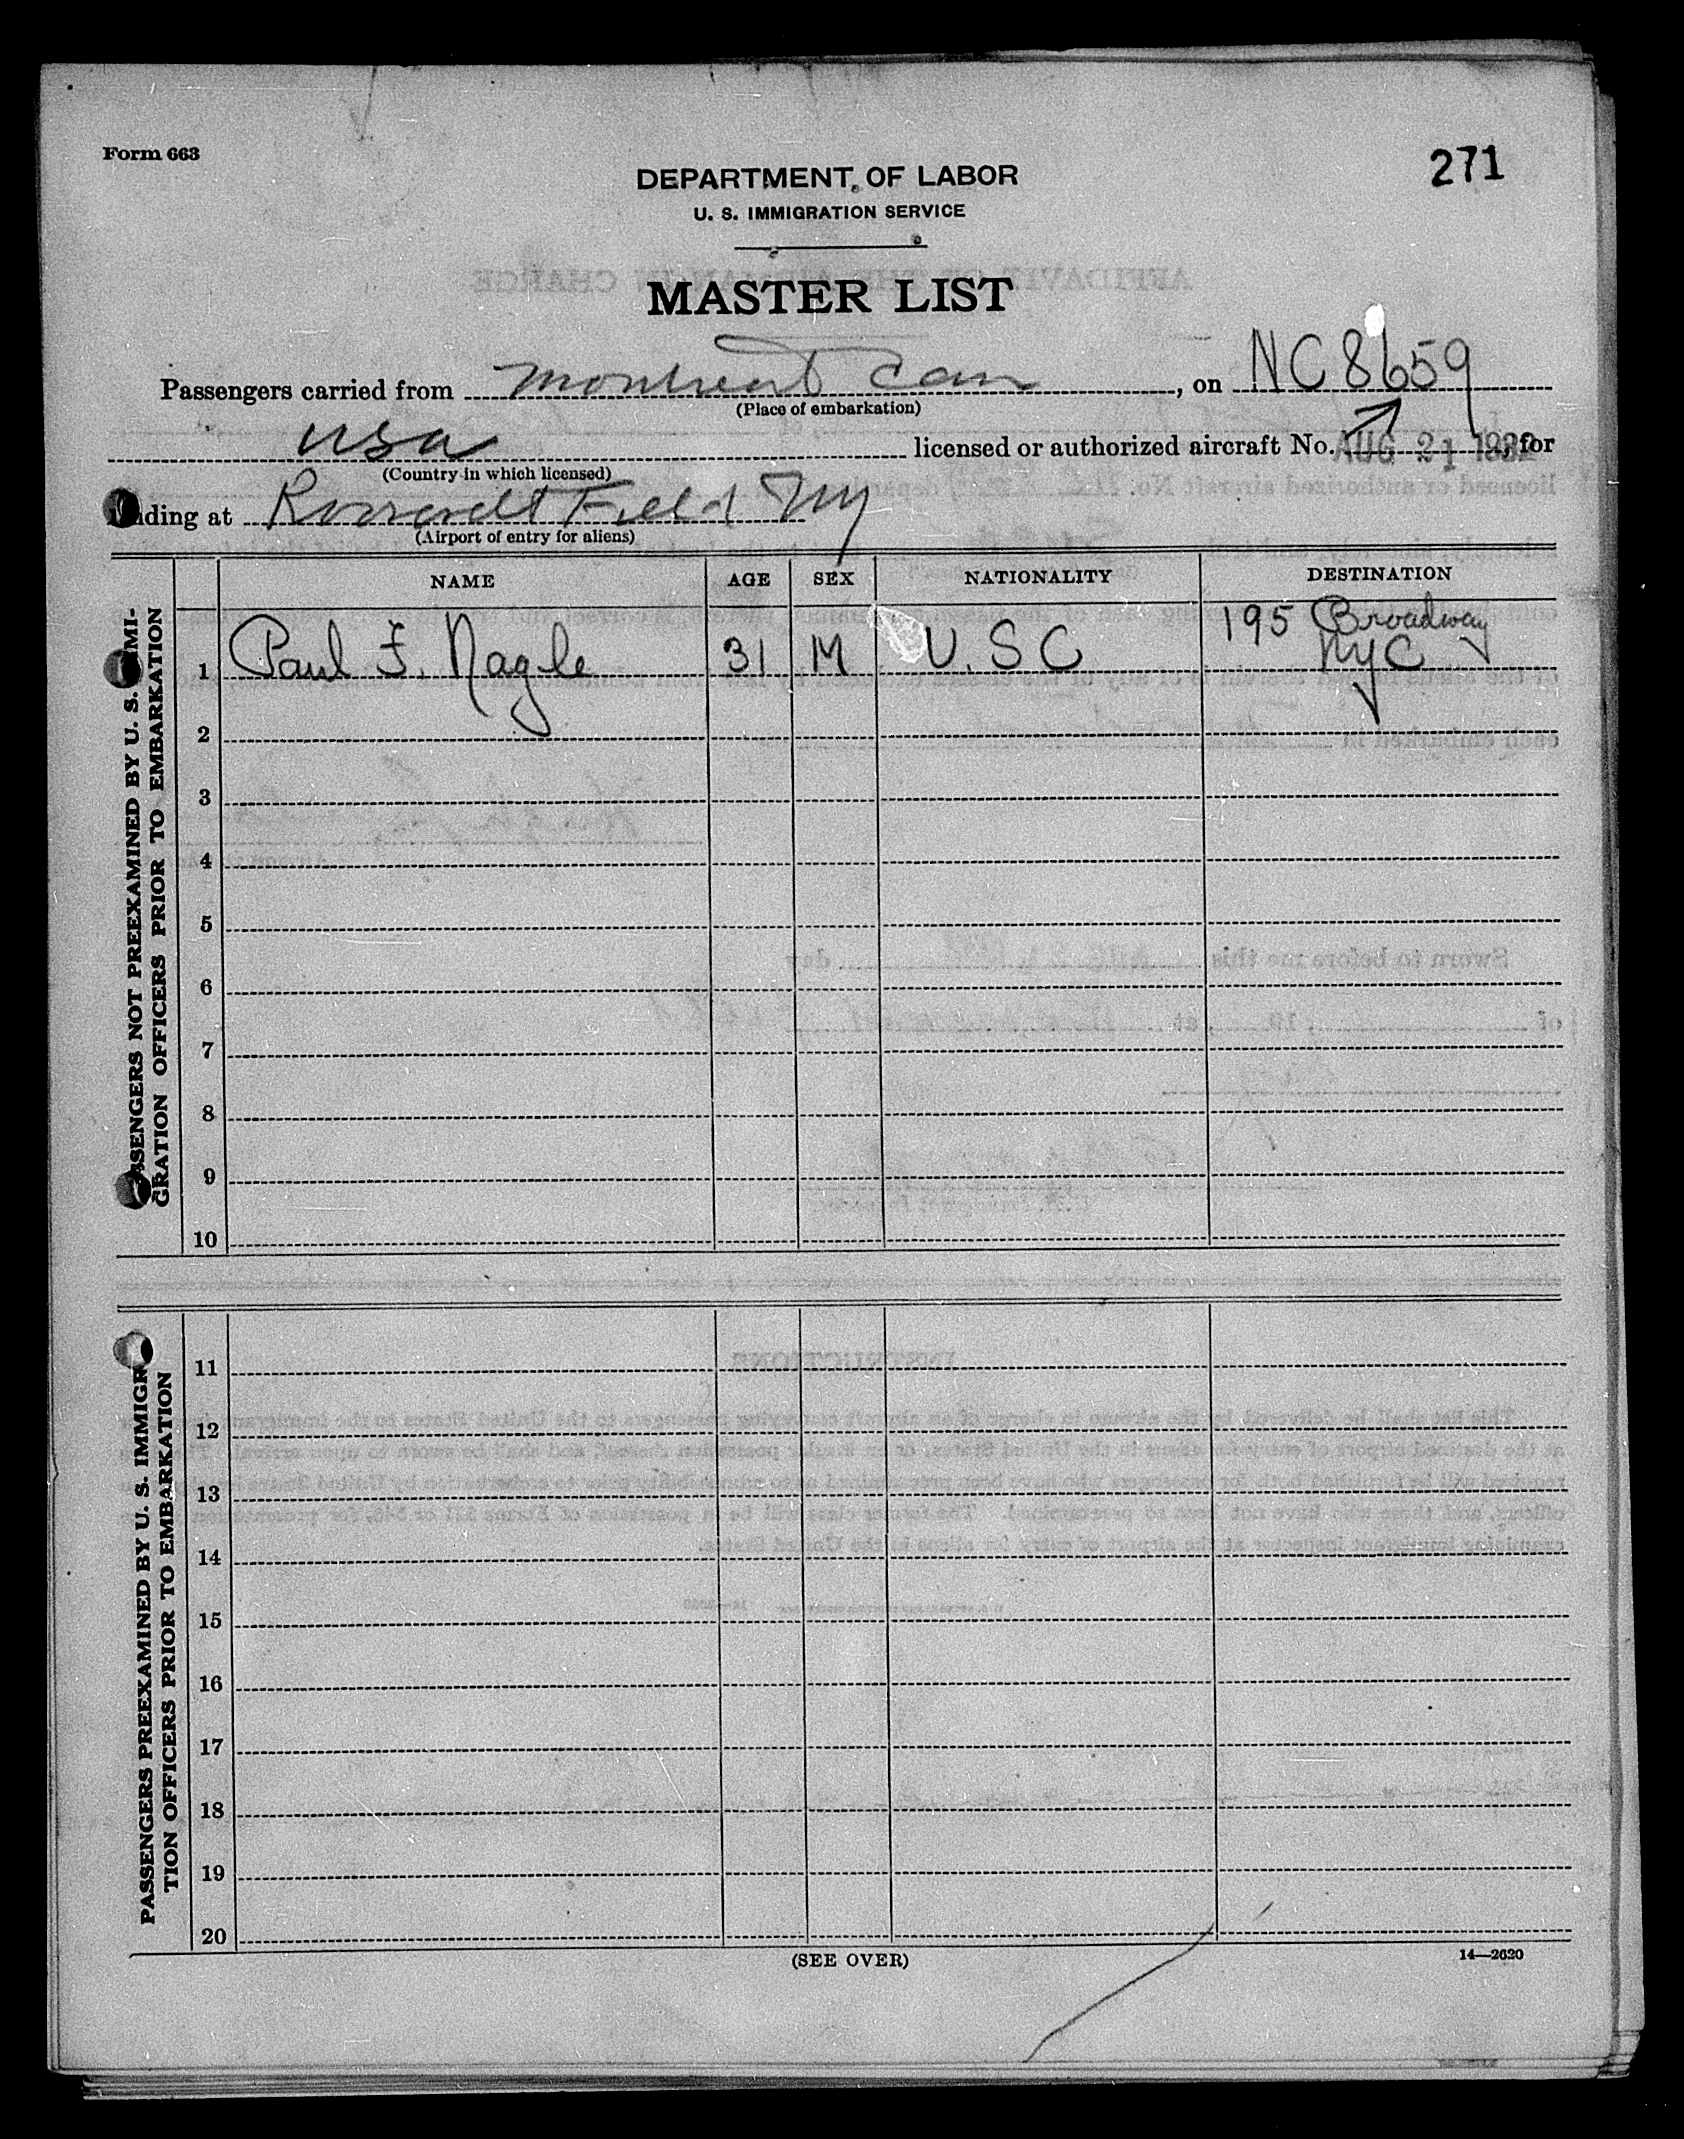 Form 663
271
DEPARTMENT OF LABOR
U. S. IMMIGRATION SERVICE
MASTER LIST
Passengers carried from Montreal Can, on NC8659
(Place of embarkation)
USA licensed or authorized aircraft No. AUG 21 1932, for
(Country in which licensed)
landing at Roosevelt Field NY
(Airport of entry for aliens)
NAME AGE SEX NATIONALITY DESTINATION
PASSENGERS NOT PREEXAMINED BY U. S. IMMI-
GRATION OFFICERS PRIOR TO EMBARKATION
195 Broadway
1 Paul F. Nagle 31 M U.S C NYC
2
3
4
5
6
7
8
9
10
PASSENGERS PREEXAMINED BY U. S. IMMIGRA-
TION OFFICERS PRIOR TO EMBARKATION
11
12
13
14
15
16
17
18
19
20
(SEE OVER)
14—2620